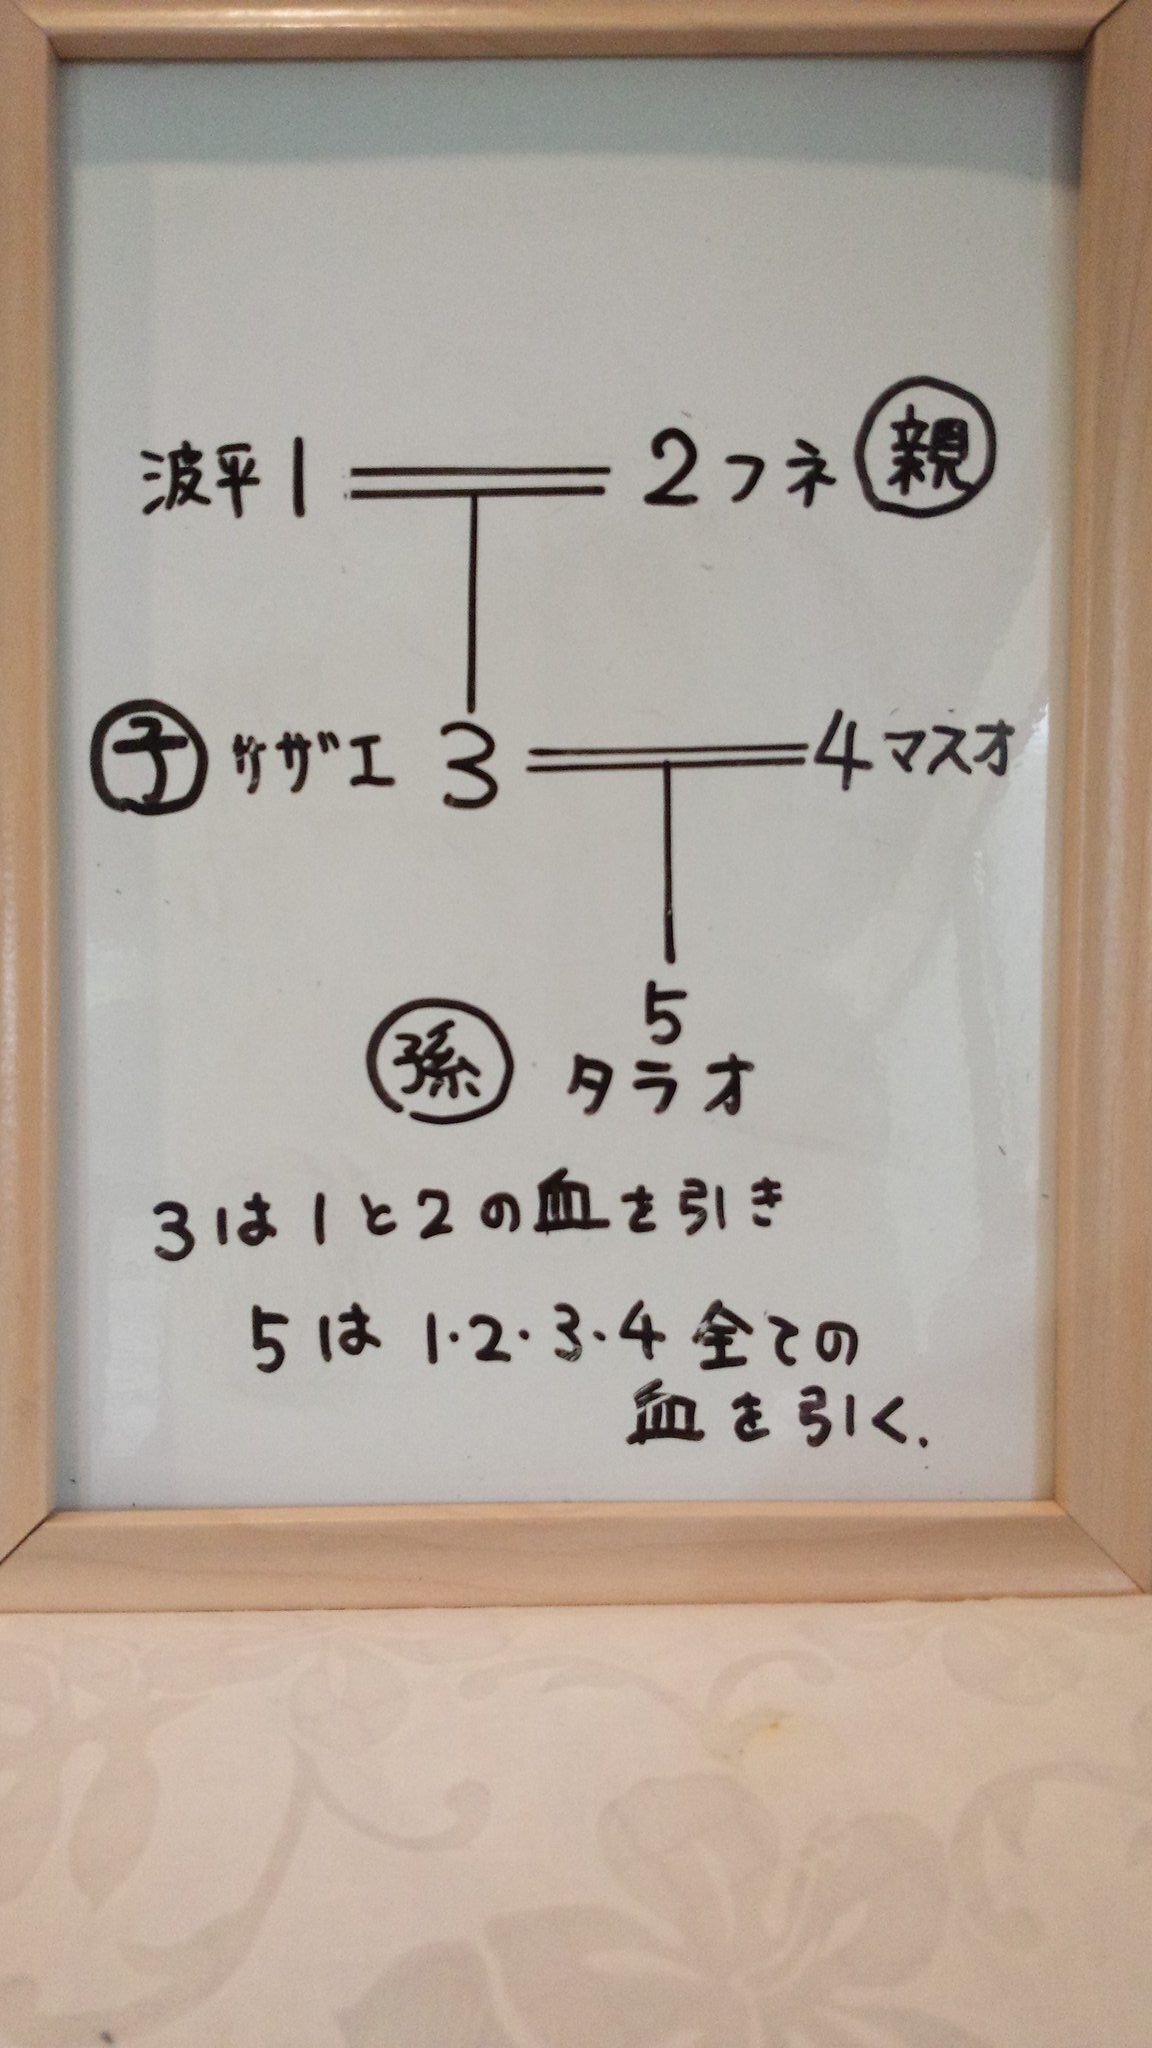 波平 1 2 フネ 親
子 サザエ 3 4 マスオ
5
孫 タラオ
3は1と2の血を引き
5は 1・2・3・4 全ての
血を引く.